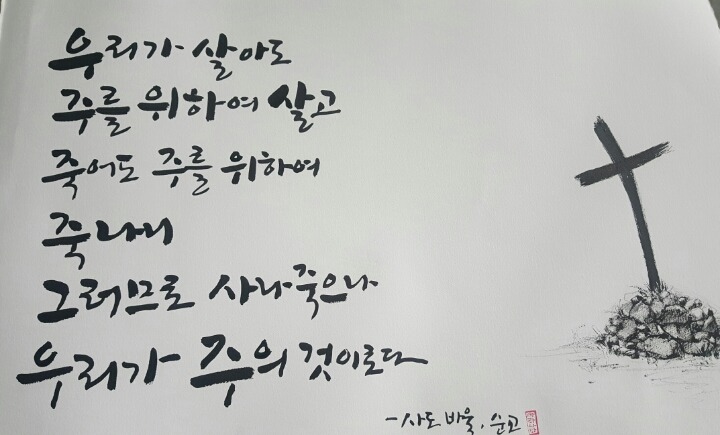 우리가 살아도
주를 위하여 살고
죽어도 주를 위하여
죽나니
그러므로 사나죽으나
우리가 주의 것이로다
-사도 바울, 순교